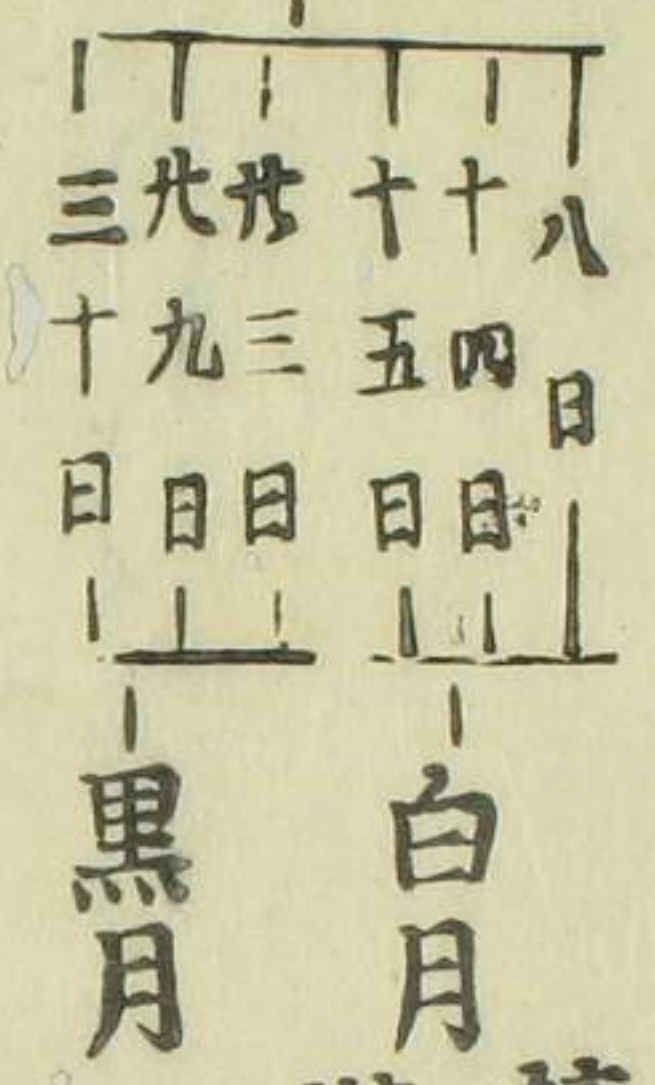 八日
十四日
十五日
廿三日
廿九日
三十日
白月
黒月